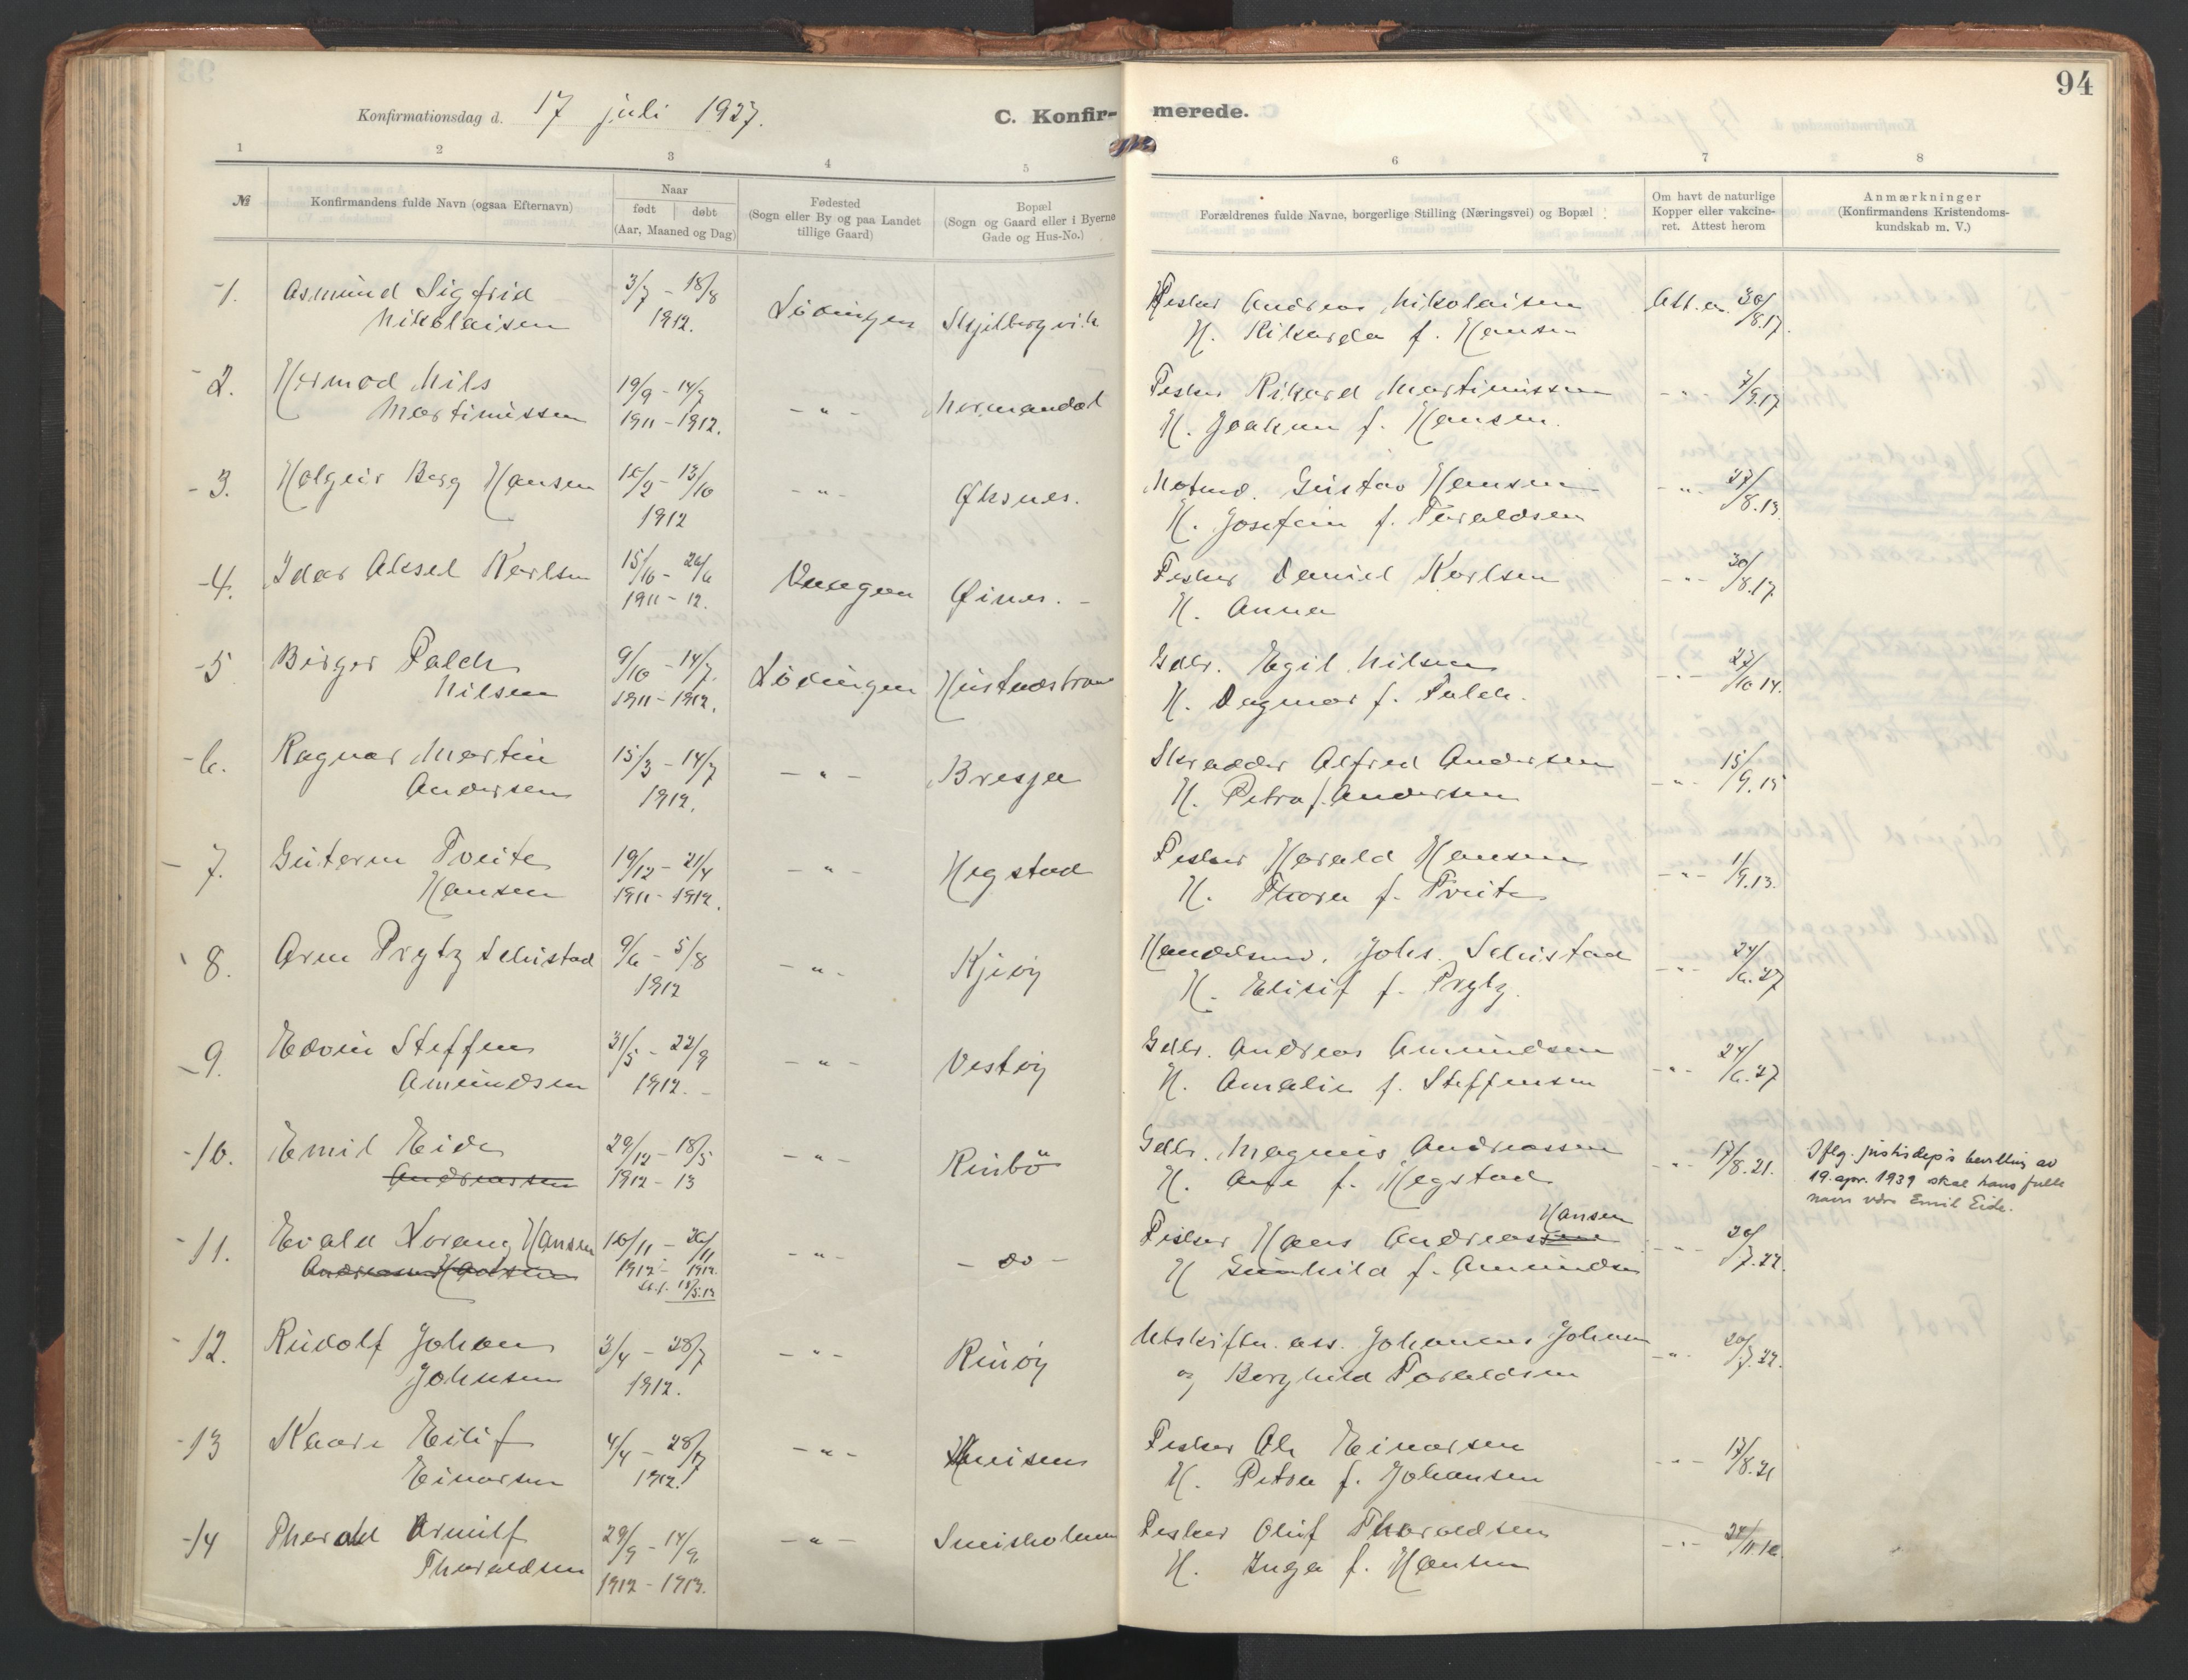 94
Konfirmationsdag d. 17 juli 1927.
C. Konfir-
merede.
1 2 3 4 5 6 7 8
№
Konfirmandens fulde Navn (ogsaa Efternavn)
Naar
født | døbt
(Aar, Maaned og Dag)
Fødested
(Sogn eller By og paa Landet
tillige Gaard)
Bopæl
(Sogn og Gaard eller i Byerne
Gade og Hus-No.)
Forældrenes fulde Navne, borgerlige Stilling (Næringsvei) og Bopæl
Om havt de naturlige
Kopper eller vakcine-
ret. Attest herom
Anmærkninger
(Konfirmandens Kristendoms-
kundskab m. V.)
1. Asmund Sigfrid 3/7 - 18/8 Lødingen Skjelbergvik Fisker Andreas Nikolaisen Att. av 30/8.17.
Nikolaisen 1912. H. Rikarda f. Hansen
2. Hermod Nils 19/9 - 14/7 - " - Normandal Fisker Rikard Martinussen - " - 7/9.17
Martinussen 1911 - 1912. H. Joakim f. Hansen.
3. Holgeir Berg Hansen 10/2 - 13/10 - " - Øksnes. Notmd. Gustav Hansen - " - 27/8.13
1912 H. Josefin f. Taraldsen
4. Idar Aksel Karlsen 15/10 - 26/6 Øines. - Fisker Daniel Karlsen - " - 30/8.17
1911 - 12. H. Anna
5 Birger Falch 9/10 - 14/7. Lødingen Gdbr. Egil Nilsen - " - 27/10 14.
Nilsen 1911 - 1912. H. Dagmar f. Falch.
6. Ragnar Martin 15/3 - 14/7 - " - Bresja Skrædder Alfred Andersen - " - 15/9.15
Andersen 1912. H. Petra f. Andersen
7. Guterm Tveite 19/12 - 21/4 - " - Hegstad Fisker Harald Hansen - " - 1/9.13.
Hansen 1911 - 1912. H. Thora f. Tveite
8. Arne Prytz Schistad 9/6 - 5/8 - " - Kjøy Handelsmd. Johs. Schistad - " - 24/6.27
1912 H. Elisif f. Prytz.
9. Edvin Steffen 31/5 - 22/9 - " - Vestøy Gdbr. Andreas Amundsen - " - 24/6.27
Amundsen 1912. - H. Amalie f. Steffensen
10. Emil Eide 29/12 - 18/5 - " - Rinbø Gdbr. Magnus Andreassen - " - 17/8.21. Iflg. justisdep's bevilling av
Andreassen 1912 - 13 H. Ane f. Hegstad 19. apr. 1939 skal hans fulle
navn være Emil Eide.
Hansen
11. Evald Norang Hansen 10/11 - 26/11 - " - - do - Fisker Hans Andreassen - " - 20/7.22.
Andreassen Hansen 1912 - 1912. H Gunhild f. Amundsen
18/5.13
12. Rudolf Johan 3/4 - 28/7 - " - Rinøy Utskiftn. ass. Johannes Johnsen - " - 20/7.22.
Johnsen 1912. og Borghild Taraldsen
13 Kaare Eilif 4/4 - 28/7 - " - Fisker Ole Einarsen - " - 17/8.21
Einarsen 1912. H. Petra f. Johansen
14 Tharald Arnulf 29/9 - 14/9. - " - Sneisholmen Fisker Oluf Tharaldsen - " -
Tharaldsen 1912 - 1913. H. Inga f. Hansen